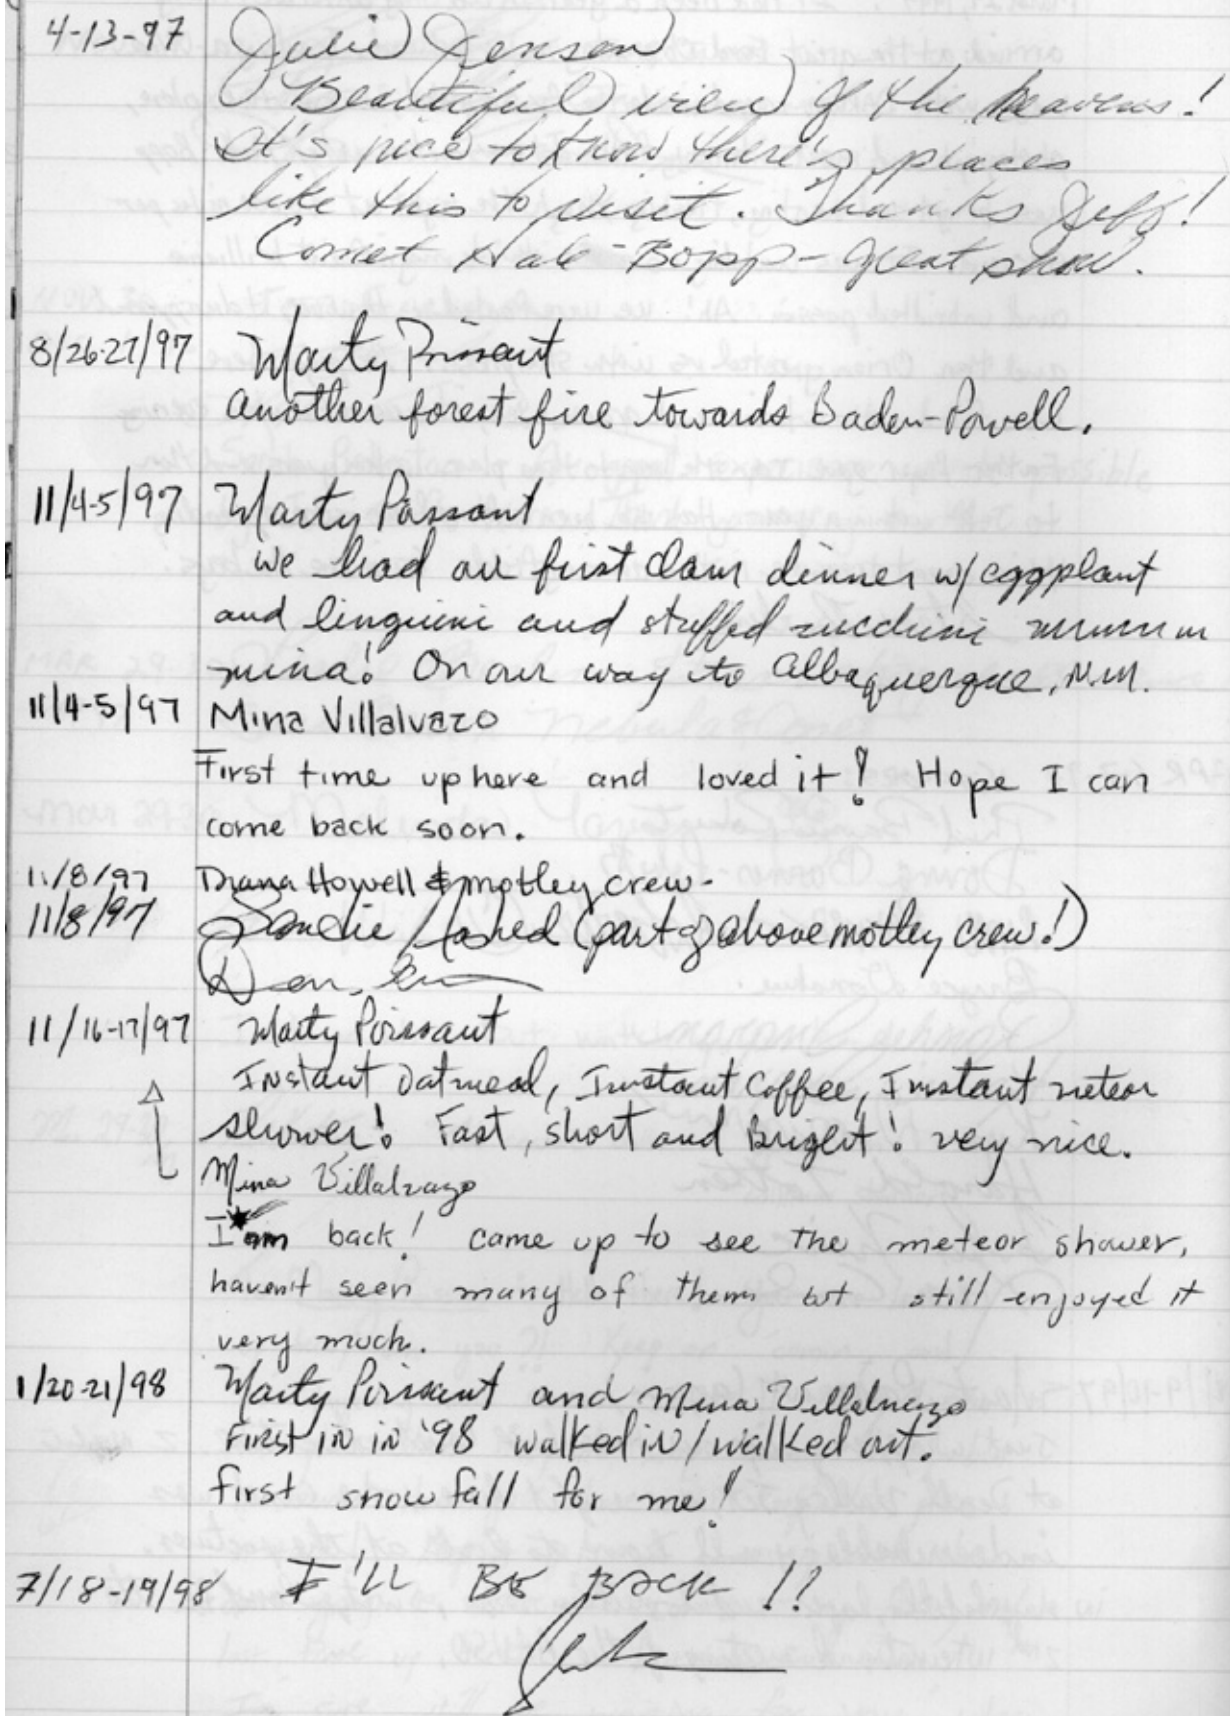 4-13-97 Julie Jensen
Beautiful view of the heavens!
It's nice to know there's places
like this to visit. Thanks Jeff!
Comet Hale-Bopp - great show.
8/26-27/97 Marty Poissant
another forest fire towards Baden-Powell.
11/4-5/97 Marty Poissant
we had our first clam dinner w/ eggplant
and linguini and stuffed zucchini mmmm
mina! On our way to Albaquerque, N.M.
11/4-5/97 Mina Villalvazo
First time up here and loved it! Hope I can
come back soon.
11/8/97 Diana Howell & motley crew-
11/8/97 (part of above motley crew!)
11/16-17/97 Marty Poissant
Instant Oatmeal, Instant Coffee, Instant meteor
shower! Fast, short and Bright! very nice.
Mina Villalvazo
I am back! came up to see the meteor shower,
haven't seen many of them but still enjoyed it
very much.
1/20-21/98 Marty Poissant and Mina Villalvazo
First in in '98 walked in/walked out.
first snow fall for me!
7/18-19/98 I'll BE BACK !!